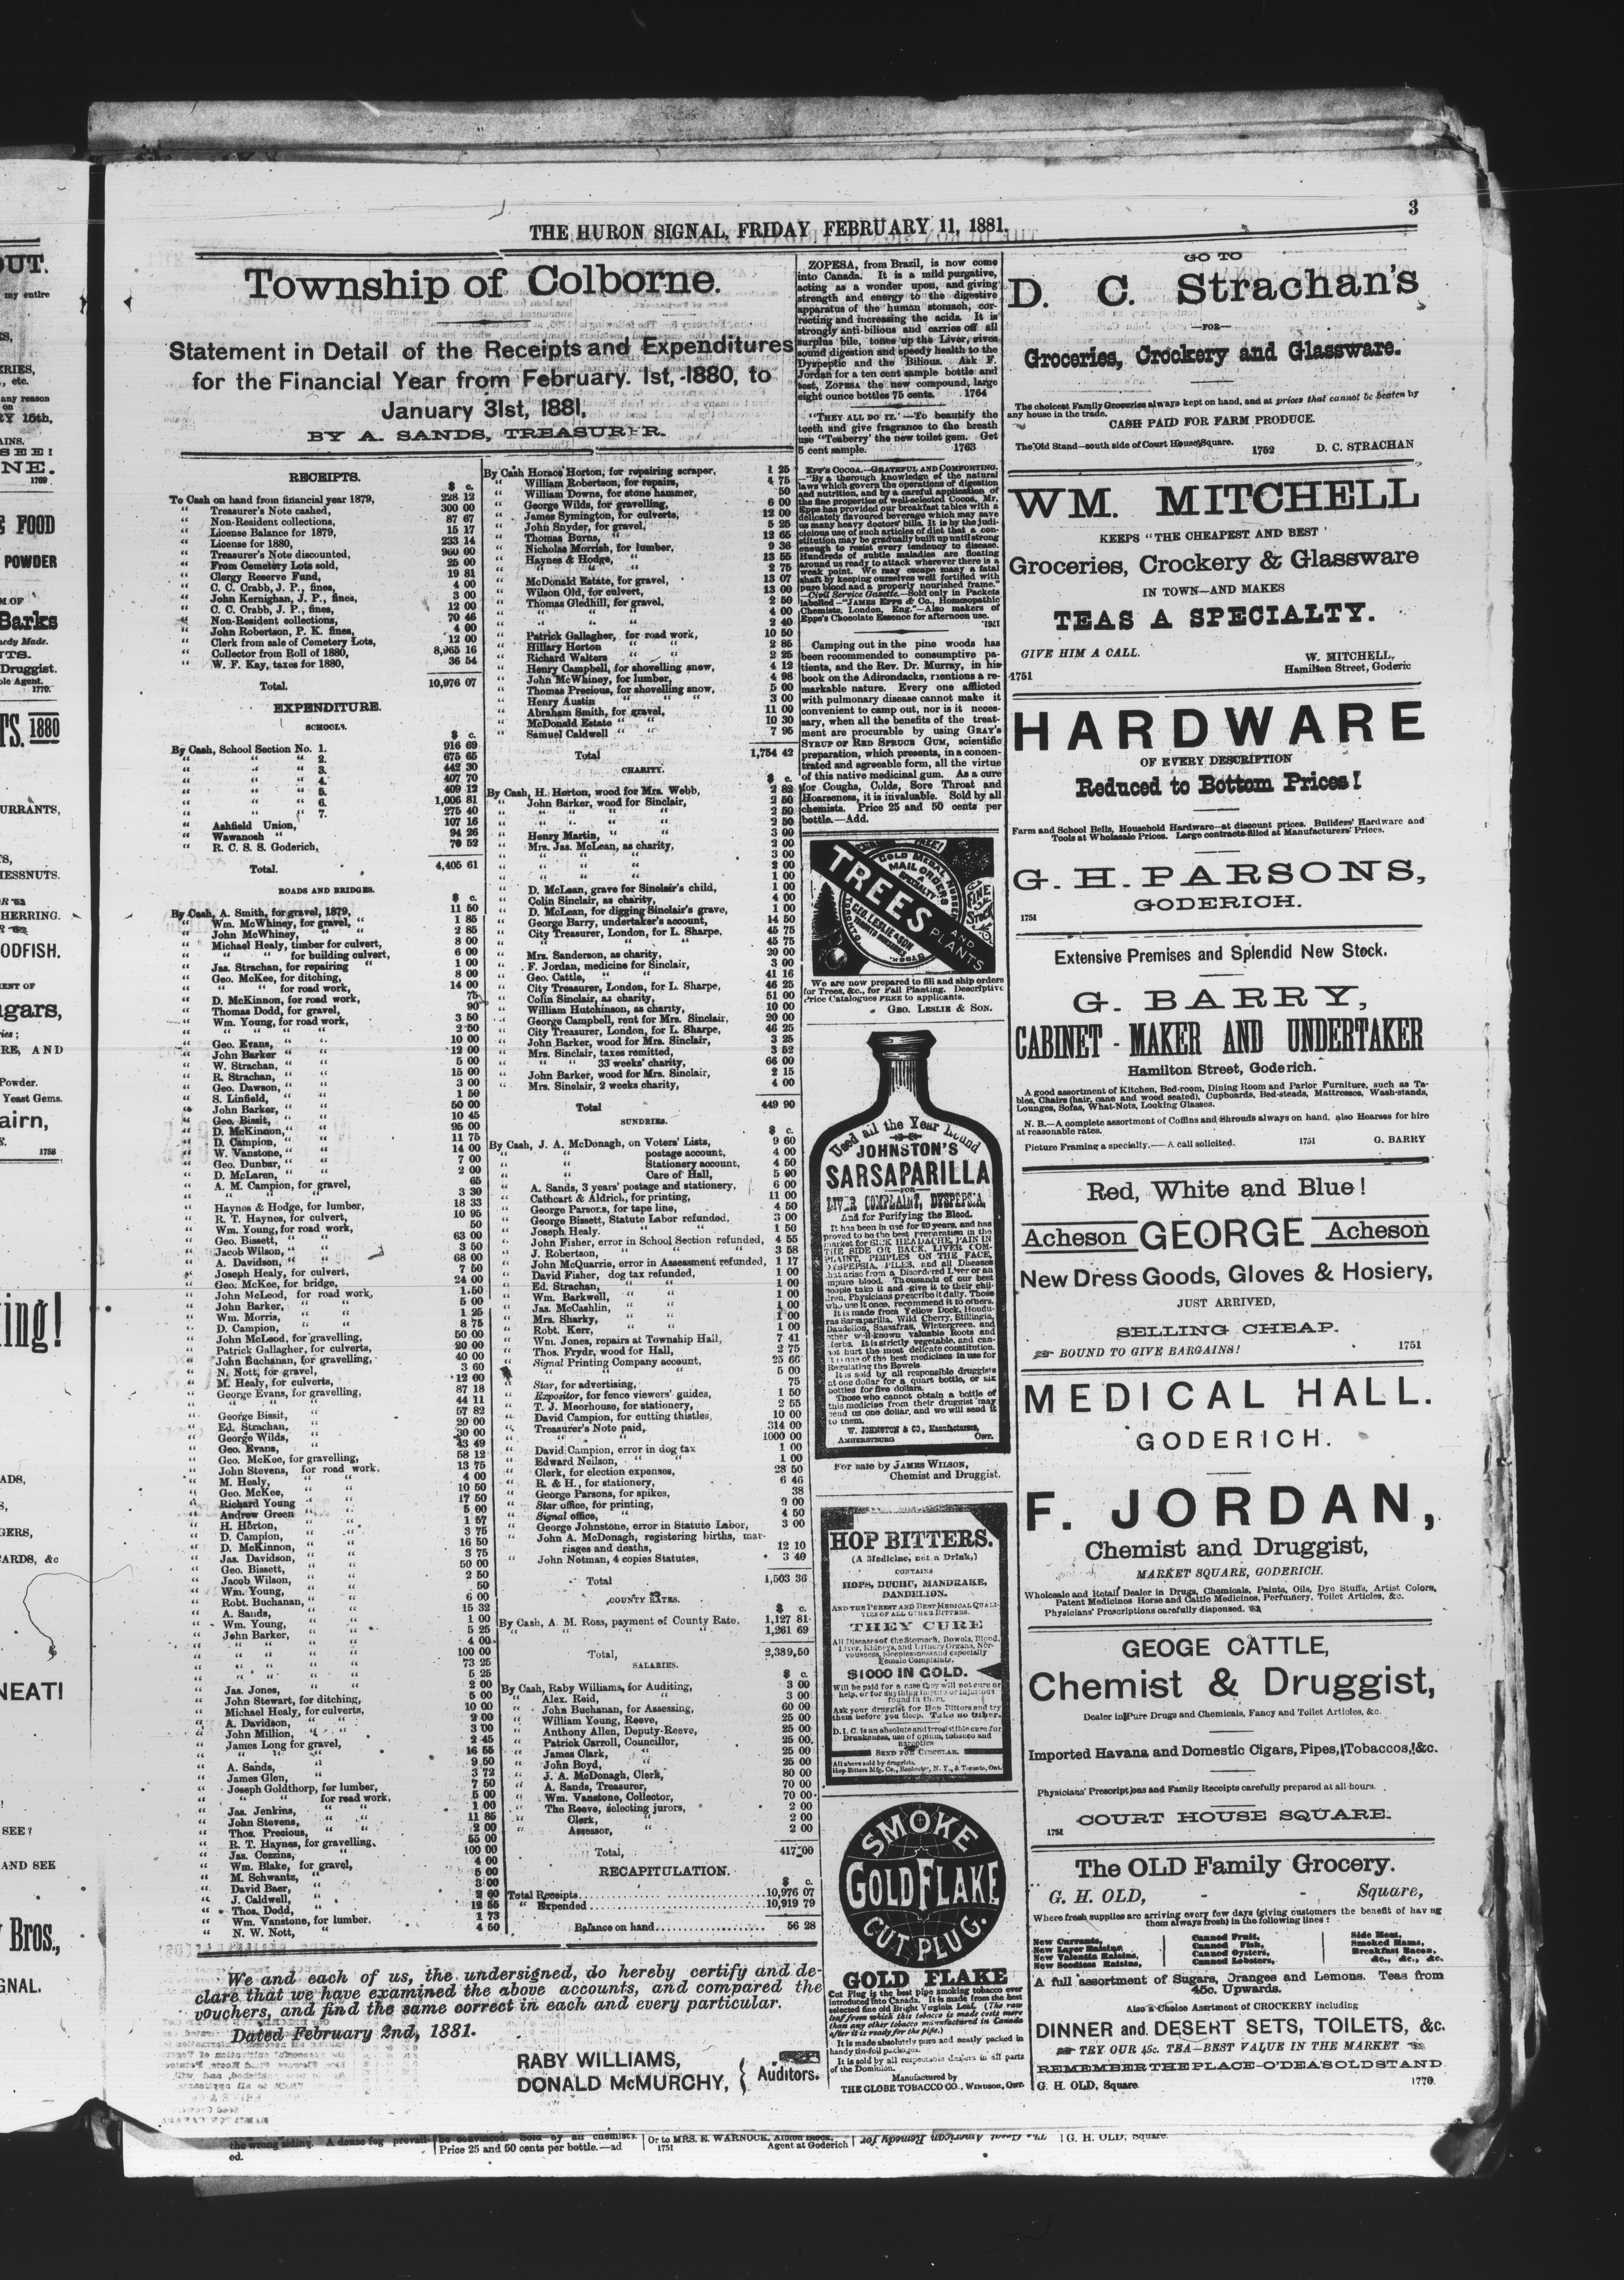 3
THE HURON SIGNAL, FRIDAY FEBRUARY 11, 1881.
Township of Colborne.
Statement in Detail of the Receipts and Expenditures
for the Financial Year from February. 1st, 1880, to
January 31st, 1881,
BY A. SANDS, TREASURER.
RECEIPTS.
$ c.
To Cash on hand from financial year 1879, 228 12
" Treasurer's Note cashed, 300 00
" Non-Resident collections, 87 67
" License Balance for 1879, 15 17
" License for 1880, 233 14
" Treasurer's Note discounted, 960 00
" From Cemetery Lots sold, 25 00
" Clergy Reserve Fund, 19 81
" C. C. Crabb, J. P., fines, 4 00
" John Kernighan, J. P., fines, 3 00
" C. C. Crabb, J. P., fines, 12 00
" Non-Resident collections, 70 46
" John Robertson, P. K. fines, 4 00
" Clerk from sale of Cemetery Lots, 12 00
" Collector from Roll of 1880, 8,965 16
" W. F. Kay, taxes for 1880, 36 54
Total. 10,976 07
EXPENDITURE.
SCHOOLS.
$ c.
By Cash, School Section No. 1. 916 69
" " " 2. 675 65
" " " 3. 442 30
" " " 4. 407 70
" " " 5. 409 12
" " " 6. 1,006 81
" " " 7. 275 40
" Ashfield Union, 107 16
" Wawanosh " 94 26
" R. C. S. S. Goderich, 70 52
Total. 4,405 61
ROADS AND BRIDGES.
$ c.
By Cash, A. Smith, for gravel, 1879, 11 50
" Wm. McWhiney, for gravel, " 1 85
" John McWhiney, " " 2 85
" Michael Healy, timber for culvert, 8 00
" " " for building culvert, 6 00
" Jas. Strachan, for repairing " 1 00
" Geo. McKee, for ditching, 8 00
" " " for road work, 14 00
" D. McKinnon, for road work, 75
" Thomas Dodd, for gravel, 90
" Wm. Young, for road work, 3 50
" " " " 2 50
" Geo. Evans, " " 10 00
" John Barker " " 12 00
" W. Strachan, " " 5 00
" R. Strachan, " " 15 00
" Geo. Dawson, " " 3 00
" S. Linfield, " " 1 50
" John Barker, " " 50 00
" Geo. Bissit, " " 10 45
" D. McKinnon, " " 95 00
" D. Campion, " " 11 75
" W. Vanstone, " " 14 00
" Geo. Dunbar, " " 7 00
" D. McLaren, " " 2 00
" A. M. Campion, for gravel, 65
" " " " 3 30
" Haynes & Hodge, for lumber, 18 33
" R. T. Haynes, for culvert, 10 95
" Wm. Young, for road work, 50
" Geo. Bissett, " " 63 00
" Jacob Wilson, " " 3 50
" A. Davidson, " " 68 00
" Joseph Healy, for culvert, 7 50
" Geo. McKee, for bridge, 24 00
" John McLeod, for road work, 1.50
" John Barker, " " 5 00
" Wm. Morris, " " 1 25
" D. Campion, " " 8 75
" John McLeod, for gravelling, 50 00
" Patrick Gallagher, for culverts, 20 00
" John Buchanan, for gravelling, 40 00
" N. Nott, for gravel, 3 60
" M. Healy, for culverts, 12 00
" George Evans, for gravelling, 87 18
" " " " 44 11
" George Bissit, " 57 82
" Ed. Strachan, " 20 00
" George Wilds, " 30 00
" Geo. Evans, " 43 49
" Geo. McKee, for gravelling, 58 12
" John Stevens, for road work, 13 75
" M. Healy, " " 4 00
" Geo. McKee, " " 10 50
" Richard Young " " 17 50
" Andrew Green " " 5 00
" H. Horton, " " 1 57
" D. Campion, " " 3 75
" D. McKinnon, " " 16 50
" Jas. Davidson, " " 3 75
" Geo. Bissett, " " 50 00
" Jacob Wilson, " " 2 50
" Wm. Young, " " 50
" Robt. Buchanan, " " 6 00
" A. Sands, " " 15 32
" Wm. Young, " " 1 00
" John Barker, " " 5 25
" " " " 4 00
" " " " 100 00
" " " " 73 25
" " " " 5 25
" Jas. Jones, " " 2 00
" John Stewart, for ditching, 5 00
" Michael Healy, for culverts, 10 00
" A. Davidson, " " 2 00
" John Million, " " 3 00
" James Long for gravel, 2 45
" " " " 16 55
" A. Sands, " 9 50
" James Glen, " 3 72
" Joseph Goldthorp, for lumber, 7 50
" " " for road work, 5 00
" Jas. Jenkins, " " 1 00
" John Stevens, " " 11 85
" Thos. Precious, " " 2 00
" R. T. Haynes, for gravelling, 55 00
" Jas. Cozzins, " 100 00
" Wm. Blake, for gravel, 4 00
" M. Schwantz, " 5 00
" David Baer, " 3 00
" J. Caldwell, " 2 00
" Thos. Dodd, " 12 55
" Wm. Vanstone, for lumber, 1 73
" N. W. Nott, 4 50
By Cash Horace Horton, for repairing scraper, 1 25
" William Robertson, for repairs, 4 75
" William Downs, for stone hammer, 50
" George Wilds, for gravelling, 6 00
" James Symington, for culverts, 12 00
" John Snyder, for gravel, 5 25
" Thomas Burns, " 12 65
" Nicholas Morrish, for lumber, 9 36
" Haynes & Hodge, " 13 55
" " " " 2 75
" McDonald Estate, for gravel, 13 07
" Wilson Old, for culvert, 13 00
" Thomas Gledhill, for gravel, 2 50
" " " " 4 00
" " " " 2 40
" Patrick Gallagher, for road work, 10 50
" Hillary Horton " " 2 85
" Richard Walters " " 2 25
" Henry Campbell, for shovelling snow, 4 12
" John McWhiney, for lumber, 4 98
" Thomas Precious, for shovelling snow, 5 00
" Henry Austin " " " 3 00
" Abraham Smith, for gravel, 11 00
" McDonald Estate " " 10 30
" Samuel Caldwell " " 7 95
Total 1,754 42
CHARITY.
$ c.
By Cash, H. Horton, wood for Mrs. Webb, 2 82
" John Barker, wood for Sinclair, 2 50
" " " " 2 50
" " " " 2 50
" Henry Martin, " " 3 00
" Mrs. Jas. McLean, as charity, 2 00
" " " " 3 00
" " " " 2 00
" " " " 1 00
" D. McLean, grave for Sinclair's child, 1 00
" Colin Sinclair, as charity, 4 00
" D. McLean, for digging Sinclair's grave, 1 00
" George Barry, undertaker's account, 14 50
" City Treasurer, London, for L. Sharpe, 45 75
" " " " 45 75
" Mrs. Sanderson, as charity, 20 00
" F. Jordan, medicine for Sinclair, 3 00
" Geo. Cattle, " " 41 16
" City Treasurer, London, for L. Sharpe, 46 25
" Colin Sinclair, as charity, 51 00
" William Hutchinson, as charity, 10 00
" George Campbell, rent for Mrs. Sinclair, 20 00
" City Treasurer, London, for L. Sharpe, 46 25
" John Barker, wood for Mrs. Sinclair, 3 25
" Mrs. Sinclair, taxes remitted, 3 52
" " " 33 weeks' charity, 66 00
" John Barker, wood for Mrs. Sinclair, 2 15
" Mrs. Sinclair, 2 weeks charity, 4 00
Total 449 90
SUNDRIES.
$ c.
By Cash, J. A. McDonagh, on Voters' Lists, 9 60
" " postage account, 4 00
" " Stationery account, 4 50
" " Care of Hall, 5 00
" A. Sands, 3 years' postage and stationery, 6 00
" Cathcart & Aldrich, for printing, 11 00
" George Parsons, for tape line, 4 50
" George Bissett, Statute Labor refunded, 3 00
" Joseph Healy. " " 1 50
" John Fisher, error in School Section refunded, 4 55
" J. Robertson, " " " 3 58
" John McQuarrie, error in Assessment refunded, 1 17
" David Fisher, dog tax refunded, 1 00
" Ed. Strachan, " " 1 00
" Wm. Barkwell, " " 1 00
" Jas. McCashlin, " " 1 00
" Mrs. Sharky, " " 1 00
" Robt. Kerr, " " 1 00
" Wm. Jones, repairs at Township Hall, 7 41
" Thos. Frydr, wood for Hall, 2 75
" Signal Printing Company account, 25 66
" " " " 5 00
" Star, for advertising, 75
" Expositor, for fence viewers' guides, 1 50
" T. J. Moorhouse, for stationery, 2 55
" David Campion, for cutting thistles, 10 00
" Treasurer's Note paid, 314 00
" " " 1000 00
" David Campion, error in dog tax 1 00
" Edward Neilson, " " 1 00
" Clerk, for election expenses, 28 50
" R. & H., for stationery, 6 46
" George Parsons, for spikes, 38
" Star office, for printing, 9 00
" Signal office, " 4 50
" George Johnstone, error in Statute Labor, 3 00
" John A. McDonagh, registering births, mar-
riages and deaths, 12 10
" John Notman, 4 copies Statutes, 3 40
Total 1,503 36
COUNTY RATES.
$ c.
By Cash, A. M. Ross, payment of County Rate, 1,127 81
" " " " 1,261 69
Total, 2,389,50
SALARIES.
$ c.
By Cash, Raby Williams, for Auditing, 3 00
" Alex. Reid, " 3 00
" John Buchanan, for Assessing, 60 00
" William Young, Reeve, 25 00
" Anthony Allen, Deputy-Reeve, 25 00
" Patrick Carroll, Councillor, 25 00
" James Clark, " 25 00
" John Boyd, " 25 00
" J. A. McDonagh, Clerk, 80 00
" A. Sands, Treasurer, 70 00
" Wm. Vanstone, Collector, 70 00
" The Reeve, selecting jurors, 2 00
" Clerk, " 2 00
" Assessor, " 2 00
Total, 417 00
RECAPITULATION.
$ c.
Total Receipts 10,976 07
" Expended 10,919 79
Balance on hand 56 28
We and each of us, the undersigned, do hereby certify and de-
clare that we have examined the above accounts, and compared the
vouchers, and find the same correct in each and every particular.
Dated February 2nd, 1881.
RABY WILLIAMS,
DONALD McMURCHY, } Auditors.
ZOPESA, from Brazil, is now come
into Canada. It is a mild purgative,
acting as a wonder upon, and giving
strength and energy to the digestive
apparatus of the human stomach, cor-
recting and increasing the acids. It is
strongly anti-bilious and carries off all
surplus bile, tones up the Liver, gives
sound digestion and speedy health to the
Dyspeptic and the Bilious. Ask F.
Jordan for a ten cent sample bottle and
test, ZOPESA the new compound, large
eight ounce bottles 75 cents. 1764
"THEY ALL DO IT."—To beautify the
teeth and give fragrance to the breath
use "Teaberry' the new toilet gem. Get
5 cent sample. 1763
EPP'S COCOA.—GRATEFUL AND COMFORTING.
—"By a thorough knowledge of the natural
laws which govern the operations of digestion
and nutrition, and by a careful application of
the fine properties of well-selected Cocoa, Mr.
Epps has provided our breakfast tables with a
delicately flavoured beverage which may save
us many heavy doctors' bills. It is by the judi-
cious use of such articles of diet that a con-
stitution may be gradually built up until strong
enough to resist every tendency to disease.
Hundreds of subtle maladies are floating
around us ready to attack wherever there is a
weak point. We may escape many a fatal
shaft by keeping ourselves well fortified with
pure blood and a properly nourished frame."
—Civil Service Gazette.—Sold only in Packets
labelled—"JAMES EPPS & Co., Homœopathic
Chemists, London, Eng."—Also makers of
Epps's Chocolate Essence for afternoon use.
Camping out in the pine woods has
been recommended to consumptive pa-
tients, and the Rev. Dr. Murray, in his
book on the Adirondacks, mentions a re-
markable nature. Every one afflicted
with pulmonary disease cannot make it
convenient to camp out, nor is it neces-
sary, when all the benefits of the treat-
ment are procurable by using GRAY'S
SYRUP OF RED SPRUCE GUM, scientific
preparation, which presents, in a concen-
trated and agreeable form, all the virtue
of this native medicinal gum. As a cure
for Coughs, Colds, Sore Throat and
Hoarseness, it is invaluable. Sold by all
chemists. Price 25 and 50 cents per
bottle.—Add.
TREES
AND
PLANTS
GOLD MEDAL NURSERY
MAIL ORDERS
SPECIALTY
FINE
STOCK
GEO. LESLIE & SON
TORONTO NURSERIES
We are now prepared to fill and ship orders
for Trees, &c., for Fall Planting. Descriptive
Price Catalogues FREE to applicants.
GEO. LESLIE & SON.
Used all the Year Round
JOHNSTON'S
SARSAPARILLA
FOR
LIVER COMPLAINT, DYSPEPSIA,
And for Purifying the Blood.
It has been in use for 20 years, and has
proved to be the best preparation in the
market for SICK HEADACHE, PAIN IN
THE SIDE OR BACK, LIVER COM-
PLAINT, PIMPLES ON THE FACE,
DYSPEPSIA, PILES, and all Diseases
that arise from a Disordered Liver or an
impure blood. Thousands of our best
people take it and give it to their chil-
dren. Physicians prescribe it daily. Those
who use it once, recommend it to others.
It is made from Yellow Dock, Hondu-
ras Sarsaparilla, Wild Cherry, Stillingia,
Dandelion, Sassafras, Wintergreen, and
other well-known valuable Roots and
Herbs. It is strictly vegetable, and can-
not hurt the most delicate constitution.
It is one of the best medicines in use for
Regulating the Bowels.
It is sold by all responsible druggists
at one dollar for a quart bottle, or six
bottles for five dollars.
Those who cannot obtain a bottle of
this medicine from their druggist may
send us one dollar, and we will send it
to them.
W. JOHNSTON & CO., Manufacturers,
AMHERSTBURG ONT.
For sale by JAMES WILSON,
Chemist and Druggist.
HOP BITTERS.
(A Medicine, not a Drink,)
CONTAINS
HOPS, BUCHU, MANDRAKE,
DANDELION.
AND THE PUREST AND BEST MEDICAL QUALI-
TIES OF ALL OTHER BITTERS.
THEY CURE
All Diseases of the Stomach, Bowels, Blood,
Liver, Kidneys, and Urinary Organs, Ner-
vousness, Sleeplessness and especially
Female Complaints.
$1000 IN GOLD.
Will be paid for a case they will not cure or
help, or for anything impure or injurious
found in them.
Ask your druggist for Hop Bitters and try
them before you sleep. Take no other.
D. I. C. is an absolute and irresistible cure for
Drunkeness, use of opium, tobacco and
narcotics
SEND FOR CIRCULAR.
All above sold by druggists.
Hop Bitters Mfg. Co., Rochester, N. Y., & Toronto, Ont.
SMOKE
GOLD FLAKE
CUT PLUG.
GOLD FLAKE
Cut Plug is the best pipe smoking tobacco ever
introduced into Canada. It is made from the best
selected fine old Bright Virginia Leaf. (The raw
leaf from which this tobacco is made costs more
than any other tobacco manufactured in Canada
after it is ready for the pipe.)
It is made absolutely pure and neatly packed in
handy tin-foil packages.
It is sold by all respectable dealers in all parts
of the Dominion.
Manufactured by
THE GLOBE TOBACCO CO., WINDSOR, ONT
GO TO
D. C. Strachan's
—FOR—
Groceries, Crockery and Glassware.
The choicest Family Groceries always kept on hand, and at prices that cannot be beaten by
any house in the trade.
CASH PAID FOR FARM PRODUCE.
The Old Stand—south side of Court House Square.
1752 D. C. STRACHAN
WM. MITCHELL
KEEPS "THE CHEAPEST AND BEST
Groceries, Crockery & Glassware
IN TOWN—AND MAKES
TEAS A SPECIALTY.
GIVE HIM A CALL.
W. MITCHELL,
1751 Hamilton Street, Goderic
HARDWARE
OF EVERY DESCRIPTION
Reduced to Bottom Prices!
Farm and School Bells, Household Hardware—at discount prices. Builders' Hardware and
Tools at Wholesale Prices. Large contracts filled at Manufacturers' Prices.
G. H. PARSONS,
1751 GODERICH.
Extensive Premises and Splendid New Stock.
G. BARRY,
CABINET - MAKER AND UNDERTAKER
Hamilton Street, Goderich.
A good assortment of Kitchen, Bed-room, Dining Room and Parlor Furniture, such as Ta-
bles, Chairs (hair, cane and wood seated), Cupboards, Bed-steads, Mattresses, Wash-stands,
Lounges, Sofas, What-Nots, Looking Glasses.
N. B.—A complete assortment of Coffins and Shrouds always on hand, also Hearses for hire
at reasonable rates.
Picture Framing a specialty.—A call solicited. 1751 G. BARRY
Red, White and Blue!
Acheson GEORGE Acheson
New Dress Goods, Gloves & Hosiery,
JUST ARRIVED,
SELLING CHEAP.
BOUND TO GIVE BARGAINS! 1751
MEDICAL HALL.
GODERICH.
F. JORDAN,
Chemist and Druggist,
MARKET SQUARE, GODERICH.
Wholesale and Retail Dealer in Drugs, Chemicals, Paints, Oils, Dye Stuffs, Artist Colors,
Patent Medicines Horse and Cattle Medicines, Perfumery, Toilet Articles, &c.
Physicians' Prescriptions carefully dispensed.
GEOGE CATTLE,
Chemist & Druggist,
Dealer in Pure Drugs and Chemicals, Fancy and Toilet Articles, &c.
Imported Havana and Domestic Cigars, Pipes, Tobaccos, &c.
Physicians' Prescriptions and Family Receipts carefully prepared at all hours.
1751 COURT HOUSE SQUARE.
The OLD Family Grocery.
G. H. OLD, - - Square,
Where fresh supplies are arriving every few days (giving customers the benefit of having
them always fresh) in the following lines:
New Currants,
New Layer Raisins,
New Valentia Raisins,
New Seedless Raisins,
Canned Fruit,
Canned Fish,
Canned Oysters,
Canned Lobsters,
Side Meat,
Smoked Hams,
Breakfast Bacon,
&c., &c., &c.
A full assortment of Sugars, Oranges and Lemons. Teas from
45c. Upwards.
Also a Choice Asertment of CROCKERY including
DINNER and DESERT SETS, TOILETS, &c.
TRY OUR 45c. TEA—BEST VALUE IN THE MARKET
REMEMBER THE PLACE—O'DEA'S OLD STAND
G. H. OLD, Square. 1770
the wrong siding. A dense fog prevail-
ed.
Price 25 and 50 cents per bottle.—ad
Or to MRS. E. WARNOCK, Albion Block,
1751 Agent at Goderich
The Great American Remedy for
G. H. OLD, Square.
OUT.
my entire
ERIES,
, etc.
any reason
on
Y 15th,
AINS.
SEE!
NE.
1769
FOOD
POWDER
M OF
Barks
edy Made.
TS.
Druggist.
ole Agent.
1770.
TS. 1880
URRANTS,
ESSNUTS.
HERRING.
ODFISH.
ENT OF
gars,
ries;
RE, AND
Powder.
Yeast Gems.
airn,
1758
ing!
ADS,
GERS,
ARDS, &c
NEAT!
SEE?
AND SEE
Bros.,
GNAL.